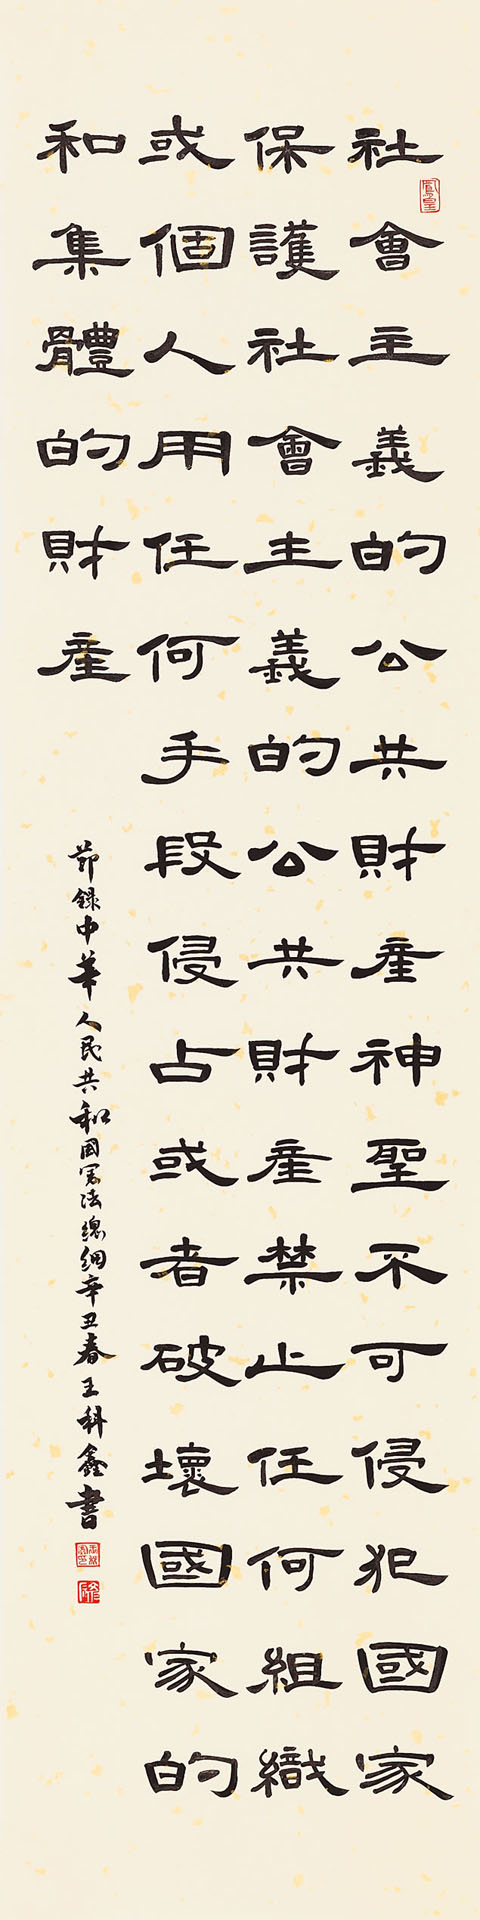 社會主義的公共財產神聖不可侵犯國家
保護社會主義的公共財產禁止任何組織
或個人用任何手段侵占或者破壞國家的
和集體的財產
節錄中華人民共和國憲法總綱辛丑春王科鑫書